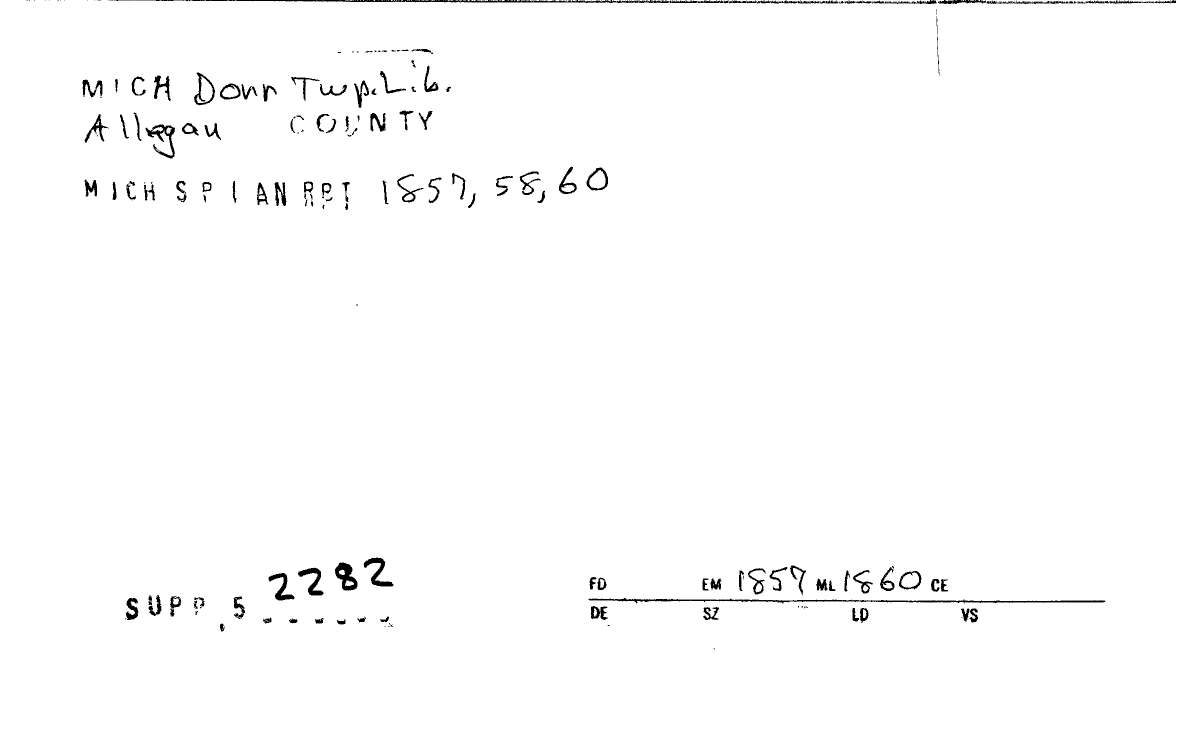 MICH Dorr Twp. Lib.
Allegan COUNTY
MICH SP I AN RPT 1857, 58, 60
SUPP. 5 2282
FD EM 1857 ML 1860 CE
DE SZ LD VS